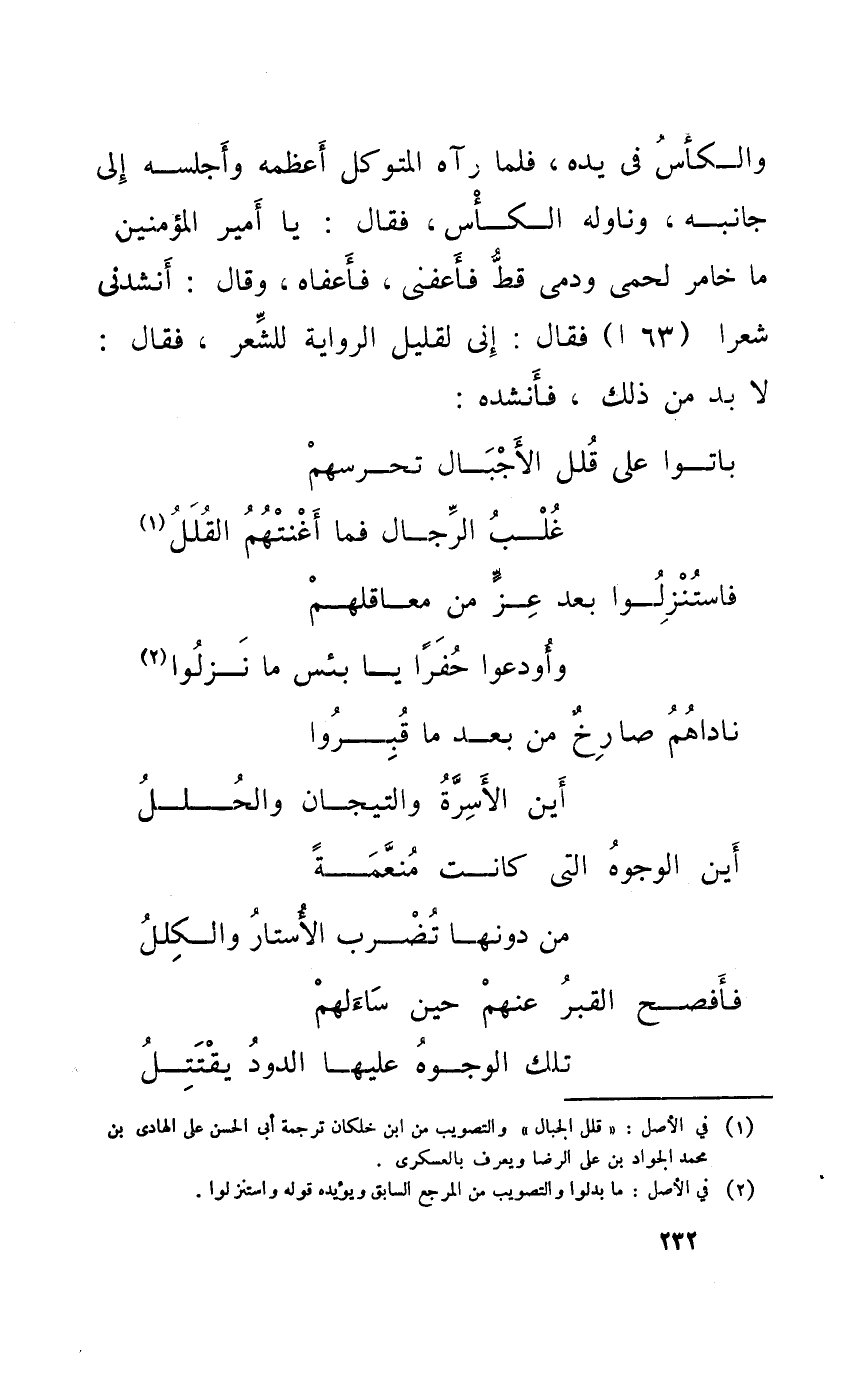 والكأسُ فى يده ، فلما رآه المتوكل أَعظمه وأَجلسه إلى
جانبه ، وناوله الكأْس ، فقال : يا أَمير المؤمنين
ما خامر لحمى ودمى قطُّ فأَعفنى ، فأَعفاه ، وقال : أَنشدنى
شعرا (٦٣ ا) فقال : إنى لقليل الرواية للشِّعر ، فقال :
لا بد من ذلك ، فأَنشده :
باتوا على قُلل الأَجْبَال تحرسهمْ
غُلْبُ الرِّجال فما أَغْنتْهُمُ القُلَلُ (١)
فاستُنْزِلُوا بعد عِزٍّ من معاقلهمْ
وأُودعوا حُفَرًا يا بئس ما نَزلُوا (٢)
ناداهُمُ صارِخٌ من بعد ما قُبِرُوا
أَين الأَسِرَّةُ والتيجان والحُللُ
أَين الوجوهُ التى كانت مُنعَّمَةً
من دونها تُضْرب الأُستارُ والكِللُ
فأَفصح القبرُ عنهمْ حين سَاءَلهمْ
تلك الوجوهُ عليها الدودُ يقْتَتِلُ
(١) في الأصل : « قلل الجبال » والتصويب من ابن خلكان ترجمة أبى الحسن على الهادى بن
محمد الجواد بن على الرضا ويعرف بالعسكرى .
(٢) في الأصل : ما بدلوا والتصويب من المرجع السابق ويؤيده قوله واستنزلوا .
٢٣٢